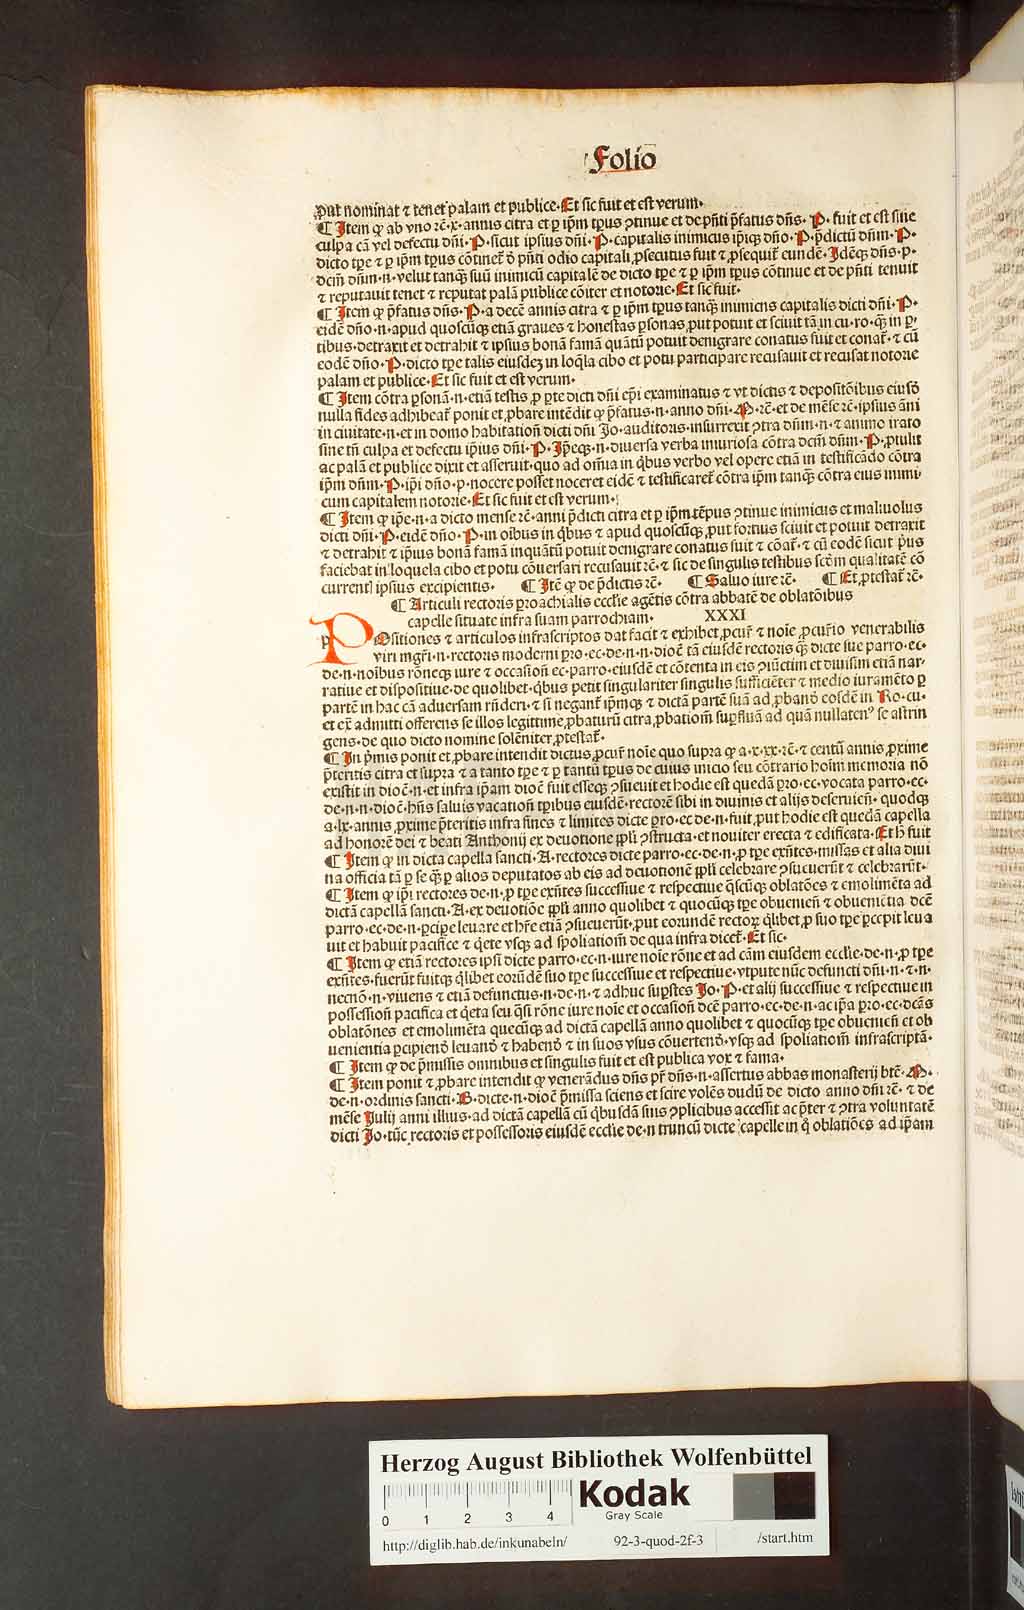 Folio
ꝓut nominat ⁊ tenet palam et publice. Et sic fuit et est verum.
¶ Item ꝙ ab vno rē. x. annis citra et ꝑ ip̄m tp̄us ꝯtinue et de pn̄ti p̄fatus dn̄s. P. fuit et est sine
culpa cā vel defectu dn̄i. P. sicut ipsius dn̄i. P. capitalis inimicus ip̄iqꝫ dn̄o. P. p̄dictū dn̄m. P.
dicto tp̄e ⁊ ꝑ ip̄m tp̄us cōtinet̄ ⁊ pn̄ti odio capitali ꝓsecutus fuit ⁊ ꝓsequit̄ eundē. Idēqꝫ dn̄s. p.
dcm̄ dn̄m. n. velut tanqꝫ suū inimicū capitalē de dicto tp̄e ⁊ ꝑ ip̄m tp̄us cōtinue et de pn̄ti tenuit
⁊ reputauit tenet ⁊ reputat palā publice cōiter et notorie. Et sic fuit.
¶ Item ꝙ p̄fatus dn̄s. P. a decē annis citra ⁊ ꝑ ip̄m tp̄us tanqꝫ inimicus capitalis dicti dn̄i. P.
eidē dn̄o. n. apud quoscūqꝫ etiā graues ⁊ honestas ꝑsonas ꝓut potuit et sciuit tā in cu. ro. qꝫ in ꝑ.
tibus. detraxit et detrahit ⁊ ipsius bonā famā quātū potuit denigrare conatus fuit et conat̄. ⁊ cū
eodē dn̄o. P. dicto tp̄e talis eiusdeꝫ in loq̄la cibo et potu participare recusauit et recusat notorie
palam et publice. Et sic fuit et est verum.
¶ Item cōtra ꝑsonā. n. etiā testis ꝓ ꝑte dicti dn̄i ep̄i examinatus ⁊ vt dictis ⁊ depositōibus eiusd̄
nulla fides adhibeat̄ ponit et ꝓbare intēdit ꝙ p̄fatus. n. anno dn̄i. M. rē. et de mēse rē. ipsius āni
in ciuitate. n. et in domo habitatiōn dicti dn̄i Jo. auditoris. insurrexit ꝯtra dn̄m. n. ⁊ animo irato
sine tn̄ culpa et defectu ip̄ius dn̄i. P. Ip̄eqꝫ. n. diuersa verba iniuriosa cōtra dcm̄ dn̄m. P. ꝓtulit
ac palā et publice dixit et asseruit. quo ad om̄ia in qꝫbus verbo vel opere etiā in testificādo cōtra
ip̄m dn̄m. P. ip̄i dn̄o. p. nocere posset noceret eidē ⁊ testificaret̄ cōtra ip̄m tanqꝫ cōtra eius inimi
cum capitalem notorie. Et sic fuit et est verum.
¶ Item ꝙ ip̄e. n. a dicto mense rē. anni p̄dicti citra et ꝑ ip̄m tēpus ꝯtinue inimicus et maliuolus
dicti dn̄i. P. eidē dn̄o. P. in oībus in qꝫbus ⁊ apud quoscūqꝫ ꝓut fortius sciuit et potuit detraxit
⁊ detrahit ⁊ ip̄ius bonā famā inquātū potuit denigrare conatus fuit ⁊ cōat̄. ⁊ cū eodē sicut p̄us
faciebat in loquela cibo et potu cōuersari recusauit rē. ⁊ sic de singulis testibus scd̄m qualitatē cō
currentī ipsius excipientis. ¶ Itē ꝙ de p̄dictis rē. ¶ Saluo iure rē. ¶ Et ꝓtestat̄ rē.
¶ Articuli rectoris ꝑroachialis ecclīe agētis cōtra abbatē de oblatōibus
capelle situate infra suam parrochiam. XXXI
POsitiones ⁊ articulos infrascriptos dat facit ⁊ exhibet ꝓcur̄ ⁊ noīe ꝓcur̄io venerabilis
viri mgr̄i. n. rectoris moderni ꝑro. ec. de. n. n. dioē tā eiusdē rectoris qꝫ dicte sue parro. ec.
de. n. noībus rōneqꝫ iure ⁊ occasiōn ec. parro. eiusdē et cōtenta in eis ꝯiūctim et diuisim etiā nar
ratiue et dispositiue. de quolibet. qꝫbus petit singulariter singulis sufficiēter ⁊ medio iuramēto ꝑ
partē in hac cā aduersam rn̄deri. ⁊ si negant̄ ip̄mqꝫ ⁊ dictā partē suā ad ꝓband̄ eosdē in Ro. cu.
et ex̄ admitti offerens se illos legittime ꝓbaturū citra ꝓbatiōm suꝑfluā ad quā nullaten⁹ se astrin
gens. de quo dicto nomine solēniter ꝓtestat̄.
¶ In p̄mis ponit et ꝓbare intendit dictus ꝓcur̄ noīe quo supra ꝙ a. x. xx. rē. ⁊ centū annis ꝓxime
p̄teritis citra et supra ⁊ a tanto tp̄e et ꝑ tantū tp̄us de cuius inicio seu cōtrario hoīm memoria nō
existit in dioē. n. et infra ip̄am dioē fuit esseqꝫ ꝯsueuit et hodie est quedā ꝑro. ec. vocata parro. ec.
de. n. n. dioē. hn̄s saluis vacatiōn tp̄ibus eiusdē. rectorē sibi in diuinis et alijs deseruien̄. quodqꝫ
a. lx. annis ꝓxime p̄teritis infra fines ⁊ limites dicte ꝑro. ec. de. n. fuit ꝓut hodie est quedā capella
ad honorē dei ⁊ beati Anthonij ex deuotione ppl̄i ꝯstructa. et nouiter erecta ⁊ edificata. Et h̄ fuit
¶ Item ꝙ in dicta capella sancti. A. rectores dicte parro. ec. de. n. ꝓ tp̄e exn̄tes. missas et alia diui
na officia tā ꝑ se qꝫ ꝑ alios deputatos ab eis ad deuotionē ppl̄i celebrare ꝯsueuerūt ⁊ celebrarūt.
¶ Item ꝙ ip̄i rectores de. n. ꝓ tp̄e exn̄tes successiue ⁊ respectiue qꝫscūqꝫ oblatōes ⁊ emolimēta ad
dictā capellā sancti. A. ex deuotiōe ppl̄i anno quolibet ⁊ quocūqꝫ tp̄e obuenien̄ ⁊ obuenientia dcē
parro. ec. de. n. ꝑciꝑe leuare et hr̄e etiā ꝯsueuerūt. ꝓut eorundē rectoꝝ qꝫlibet ꝓ suo tp̄e ꝑcepit leua
uit et habuit pacifice ⁊ qꝫete vsqꝫ ad spoliatiōm de qua infra dicet̄. Et sic.
¶ Item ꝙ etiā rectores ipsi dicte parro. ec. n. iure noīe rōne et ad cām eiusdem ecclīe. de. n. ꝓ tp̄e
exn̄tes. fuerūt fuitqꝫ qꝫlibet eorūdē suo tp̄e successiue et respectiue. vtpute nūc defuncti dn̄i. n. ⁊. n.
necnō. n. viuens ⁊ etiā defunctus. n. de. n. ⁊ adhuc suꝑstes Jo. P. et alij successiue ⁊ respectiue in
possessiōn pacifica et qꝫeta seu qꝫsi rōne iure noīe et occasiōn dcē parro. ec. de. n. ac ip̄a ꝑro. ec. dcās
oblatōnes et emolimēta quecūqꝫ ad dictā capellā anno quolibet ⁊ quocūqꝫ tp̄e obuenien̄ et ob
uenientia ꝑcipiend̄ leuand̄ ⁊ habend̄ ⁊ in suos vsus cōuertend̄. vsqꝫ ad spoliatiōm infrascriptā.
¶ Item ꝙ de p̄missis omnibus et singulis fuit et est publica vox ⁊ fama.
¶ Item ponit ⁊ ꝓbare intendit ꝙ venerādus dn̄s pr̄ dn̄s. n. assertus abbas monasterij btē. M.
de. n. ordinis sancti. B. dicte. n. dioē p̄missa sciens et scire volēs dudū de dicto anno dn̄i rē. ⁊ de
mēse Julij anni illius. ad dictā capellā cū qꝫbusdā suis ꝯplicibus accessit ac p̄ter ⁊ ꝯtra voluntatē
dicti Jo. tūc rectoris et possessoris eiusdē ecclīe de. n truncū dicte capelle in qꝫ oblatiōes ad ip̄am
Herzog August Bibliothek Wolfenbüttel
0 1 2 3 4
Kodak
Gray Scale
http://diglib.hab.de/inkunabeln/ 92-3-quod-2f-3 /start.htm